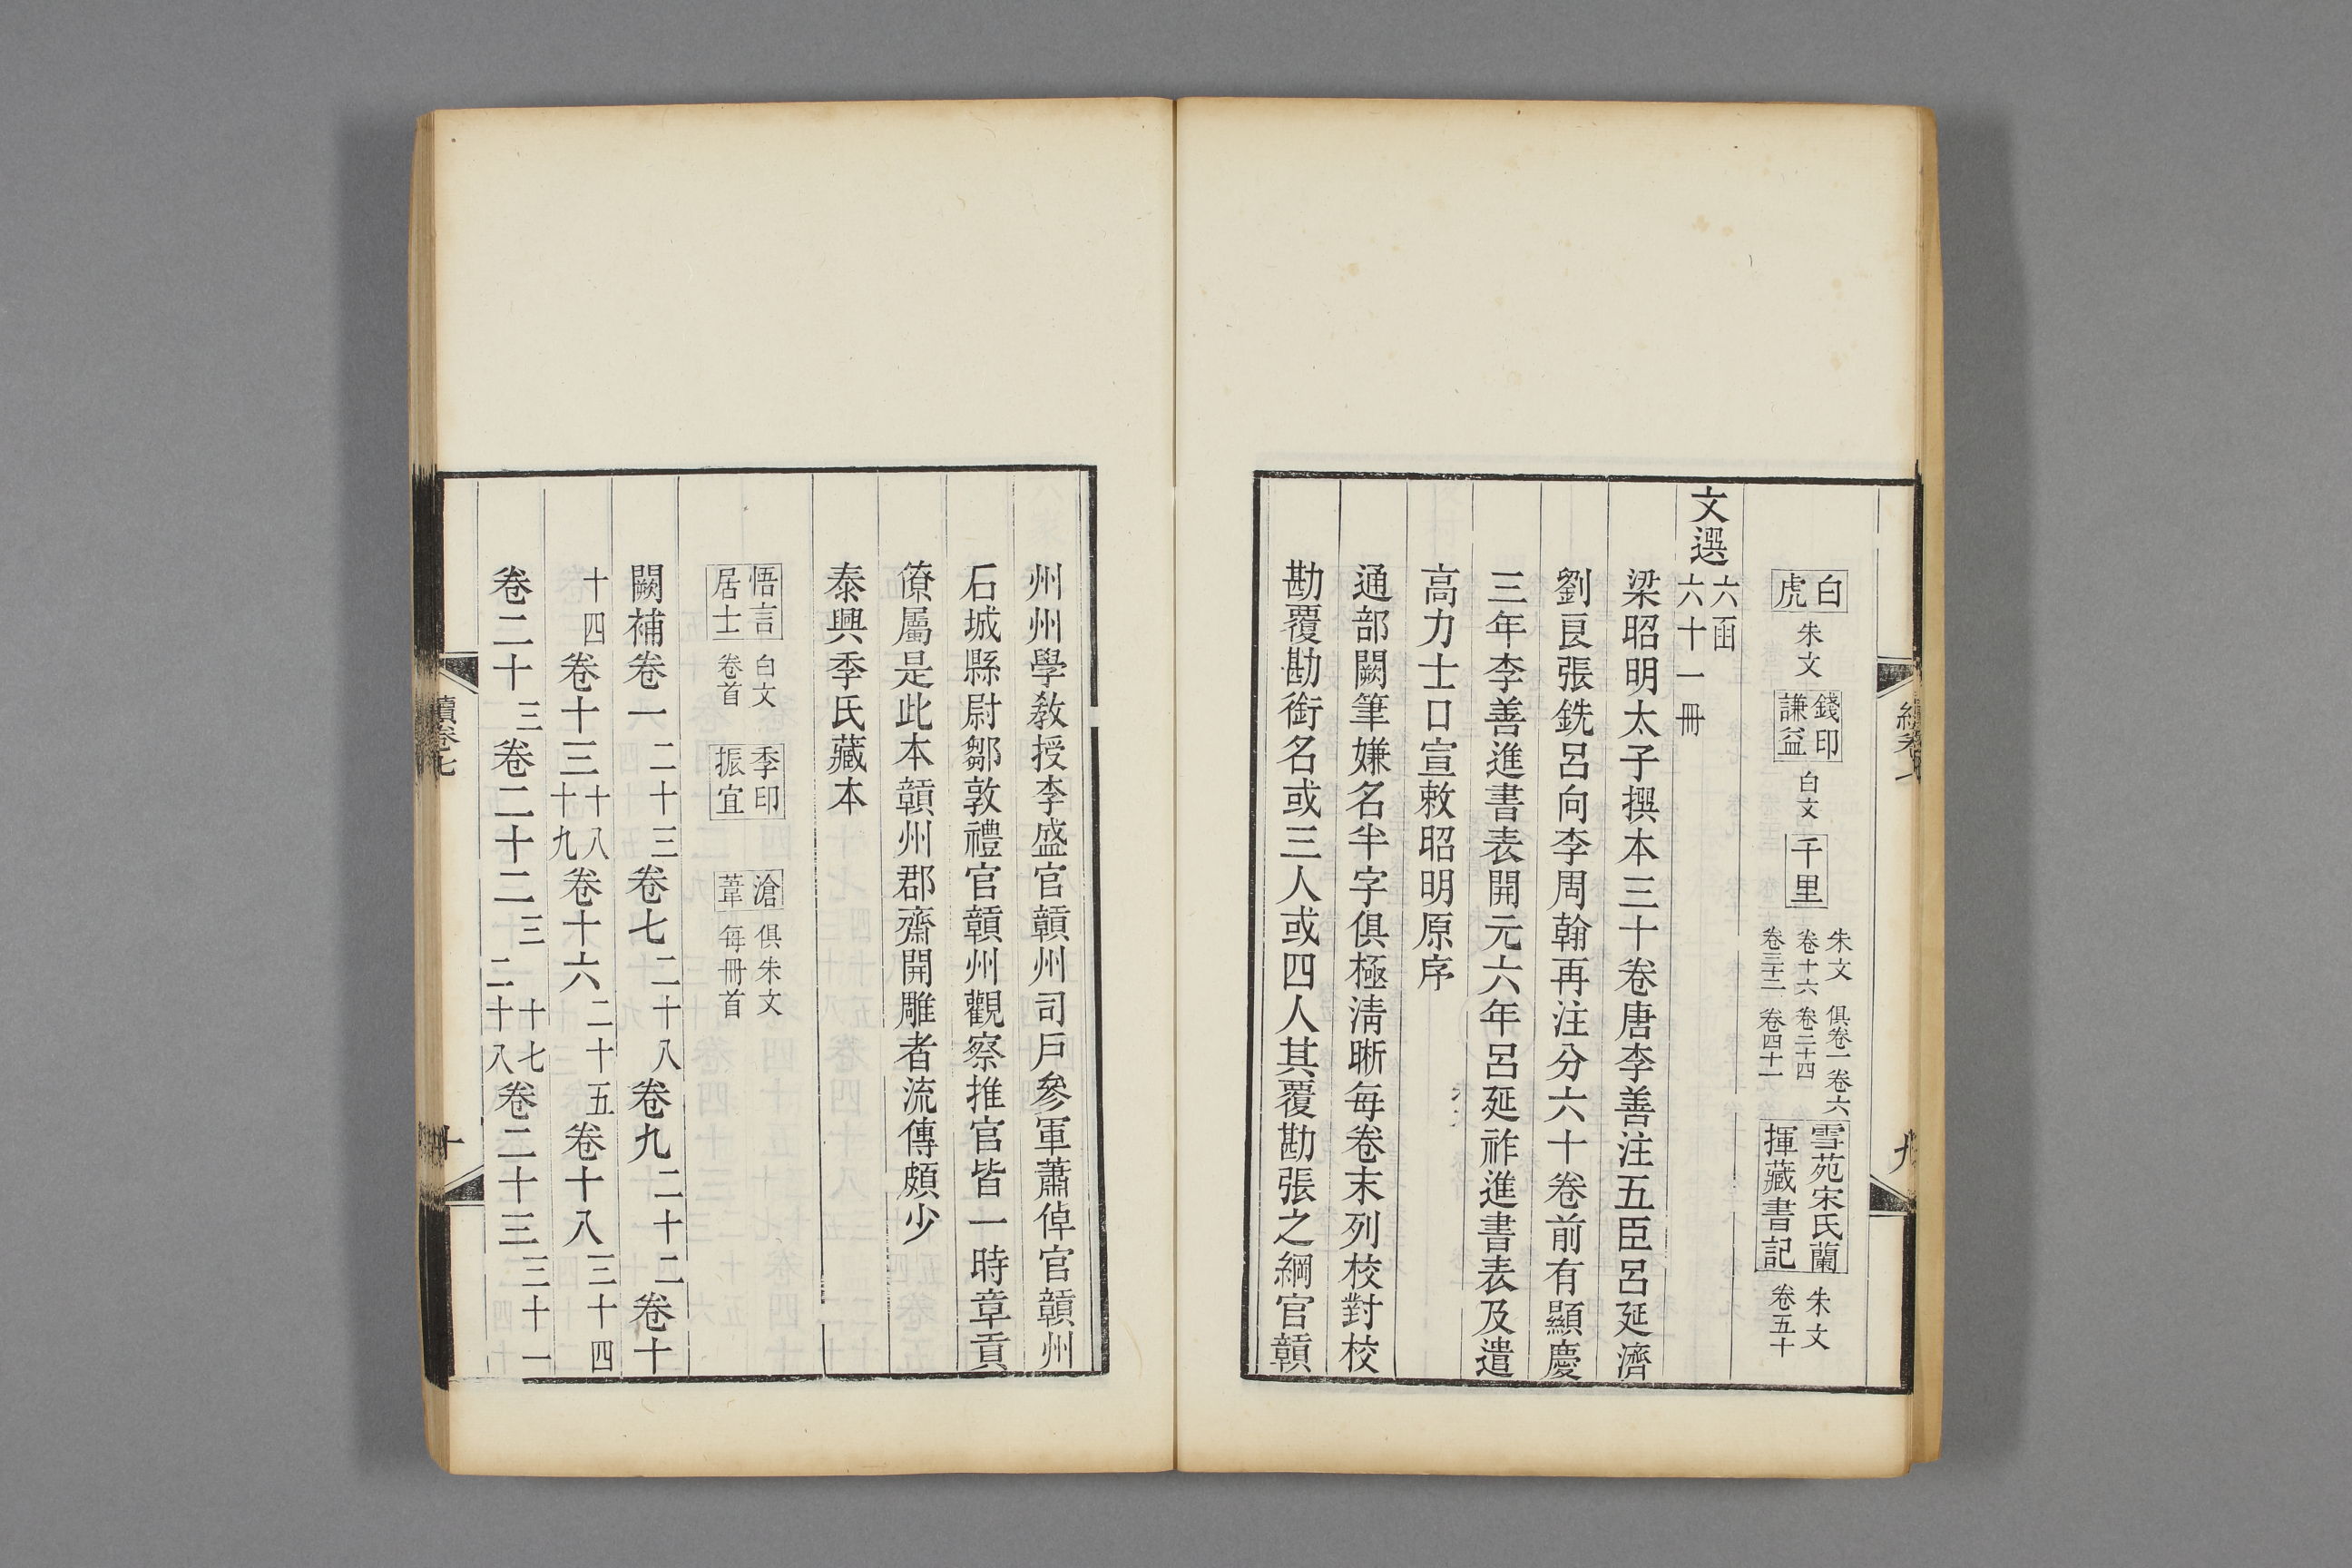 白虎 朱文 錢印謙益 白文 千里 朱文 俱卷一卷六卷十六 卷二十四卷三十二 卷四十一 雪苑宋氏蘭揮藏書記 朱文卷五十
文選 六函六十一冊
梁昭明太子撰本三十卷唐李善注五臣呂延濟
劉良張銑呂向李周翰再注分六十卷前有顯慶
三年李善進書表開元六年呂延祚進書表及遣
高力士口宣敕昭明原序
通部闕筆嫌名半字俱極淸晰每卷末列校對校
勘覆勘銜名或三人或四人其覆勘張之綱官贑
州州學敎授李盛官贑州司戶參軍蕭倬官贑州
石城縣尉鄒敦禮官贑州觀察推官皆一時章貢
僚屬是此本贑州郡齋開雕者流傳頗少
泰興季氏藏本
悟言居士 白文卷首 季印振宜 滄葦 俱朱文每冊首
闕補卷一 二十三 卷七 二十八 卷九 二十二 卷十
十四 卷十三 十八十九 卷十六 二十五 卷十八 三十四
卷二十 三 卷二十二 三 十七二十八 卷二十三 三十一
續卷七
十
九